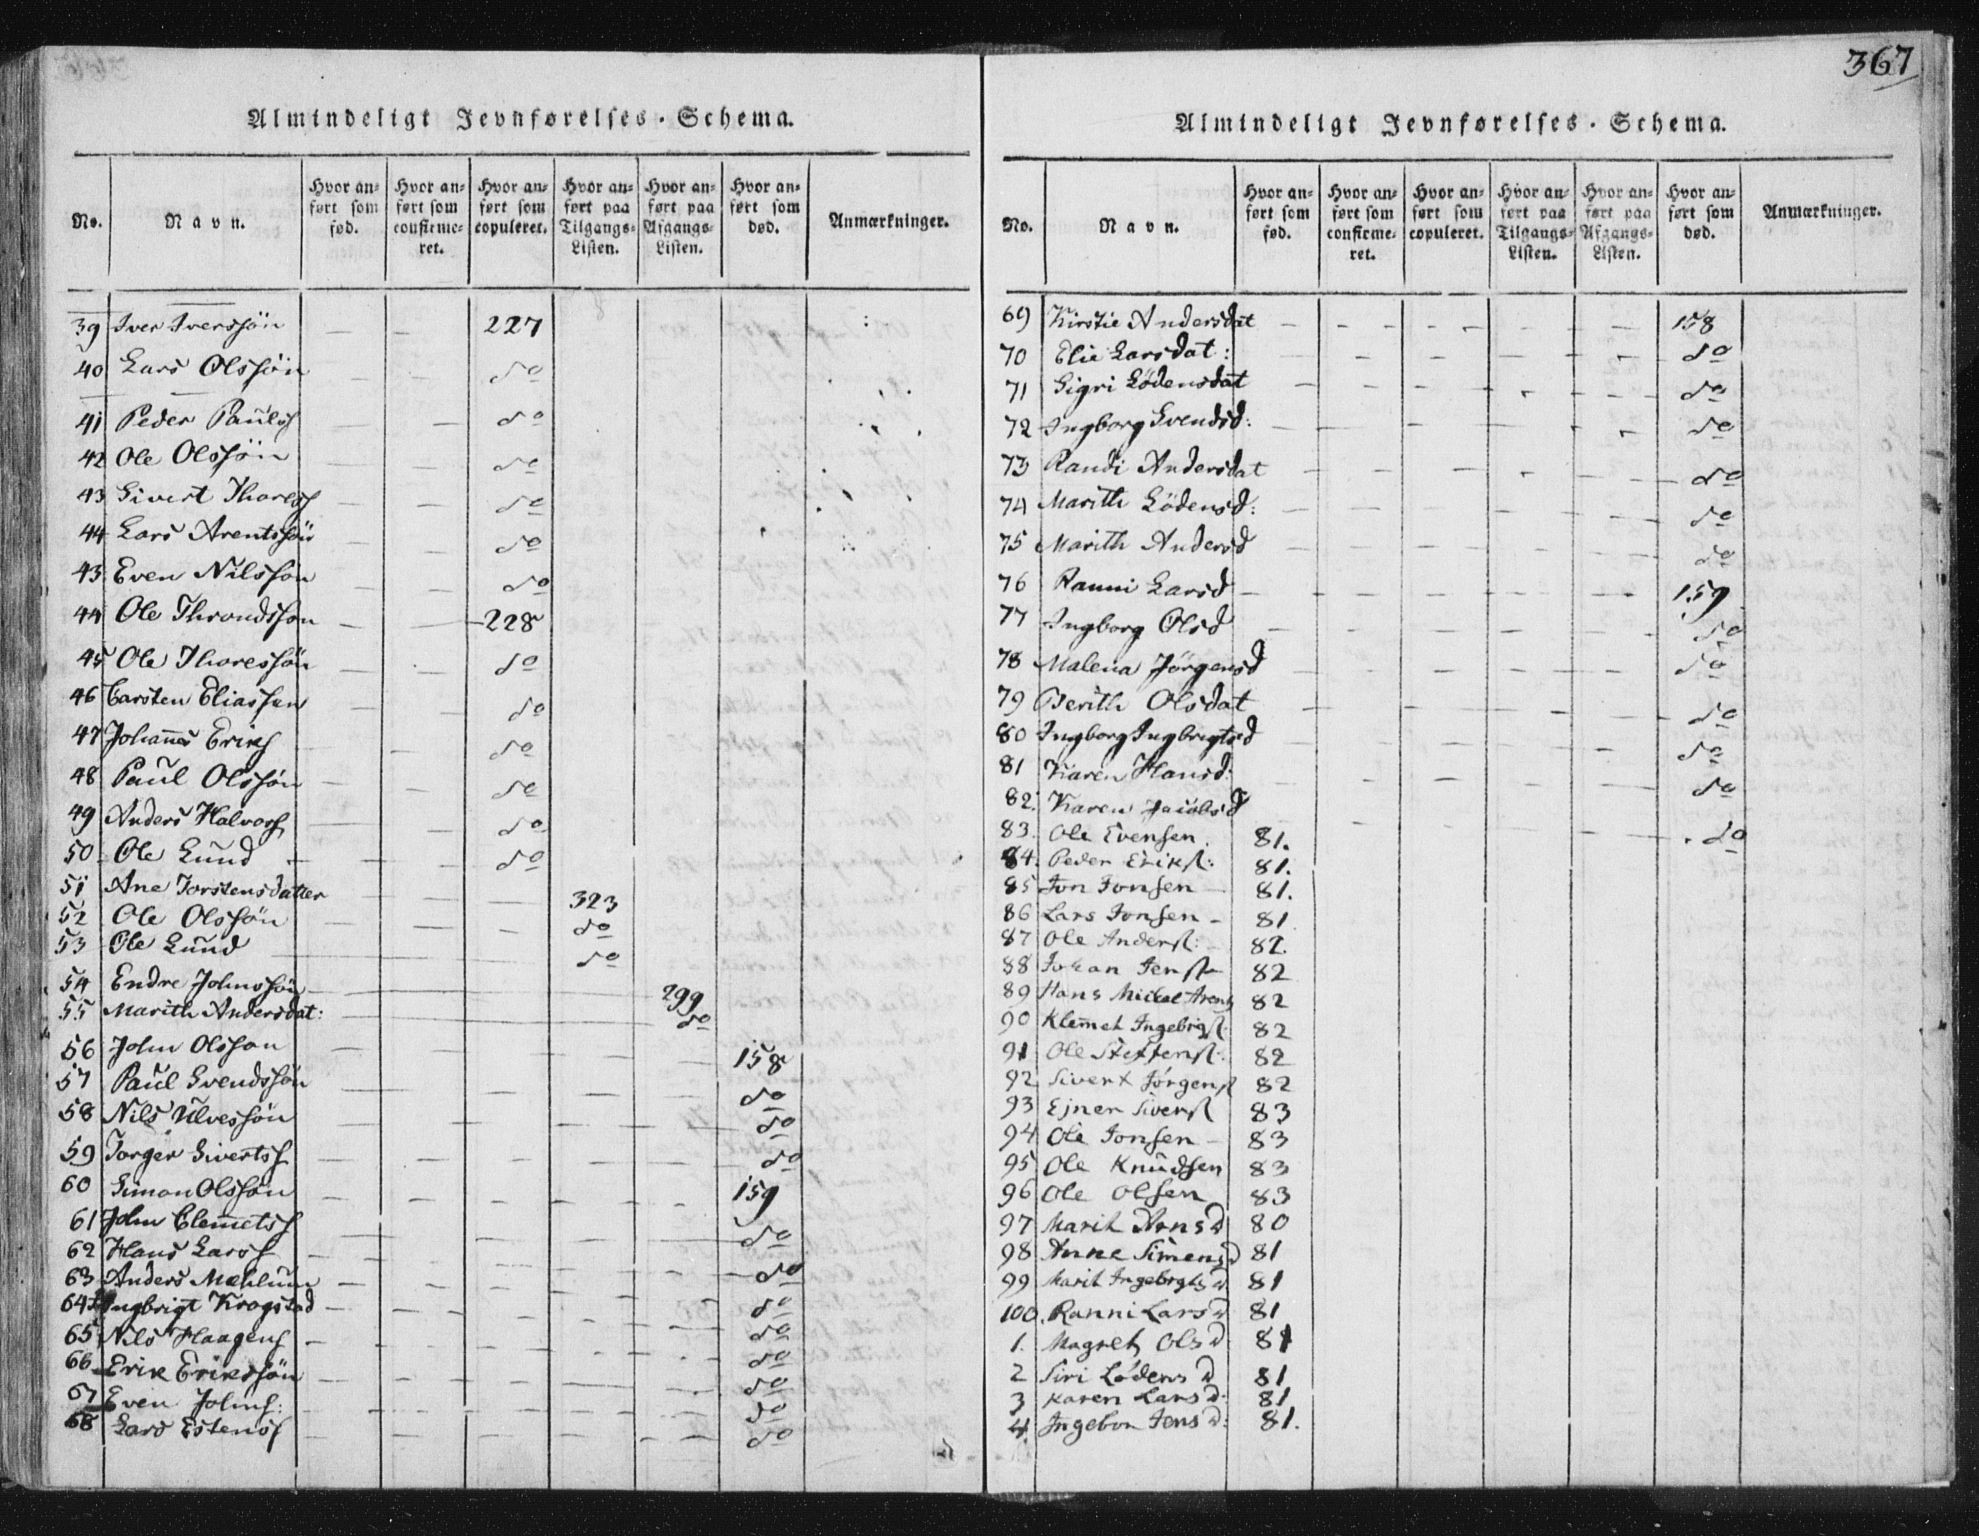 367
Almindeligt Jevnførelses-Schema.
No. | Navn. | Hvor anført som fød. | Hvor anført som confirmeret. | Hvor anført som copuleret. | Hvor anført paa Tilgangs-Listen. | Hvor anført paa Afgangs-Listen. | Hvor anført som død. | Anmærkninger.
39 Iver Iverssön — — 227
40 Lars Olssön — — do
41 Peder Pauls — — do
42 Ole Olssön — — do
43 Sivert Thoress — — do
44 Lars Arentssön — — do
43 Even Nilssön — — do
44 Ole Throndssön — — 228
45 Ole Thoressön — — do
46 Carsten Eliassen — — do
47 Johannes Eriks — — do
48 Paul Olssön — — do
49 Anders Halvors — — do
50 Ole Lund — — do
51 Ane Torstensdatter — — — 323
52 Ole Olssön — — — do
53 Ole Lund — — — do
54 Endre Johnssön — — — — 299
55 Marith Andersdat: — — — — do
56 John Olsson — — — — — 158
57 Paul Svendssön — — — — — do
58 Nils Ulvessön — — — — — do
59 Torger Sivertss — — — — — do
60 Simon Olssön — — — — — 159
61 John Clemets — — — — — do
62 Hans Larss — — — — — do
63 Anders Mæhlum — — — — — do
64 Ingbrigt Krogstad — — — — — do
65 Nils Haagens — — — — — do
66 Erik Erikssön — — — — — do
67 Even Johns: — — — — — do
68 Lars Estens — — — — — do
Almindeligt Jevnførelses-Schema.
No. | Navn. | Hvor anført som fød. | Hvor anført som confirmeret. | Hvor anført som copuleret. | Hvor anført paa Tilgangs-Listen. | Hvor anført paa Afgangs-Listen. | Hvor anført som død. | Anmærkninger.
69 Kirstie Andersdat — — — — — 158
70 Elie Larsdat: — — — — — do
71 Sigri Lödensdat — — — — — do
72 Ingborg Svendsd: — — — — — do
73 Randi Andersdat — — — — — do
74 Marith Lödensd: — — — — — do
75 Marith Andersd — — — — — do
76 Ranni Larsd — — — — — 159
77 Ingborg Olsd — — — — — do
78 Malena Jörgensd — — — — — do
79 Berith Olsdat — — — — — do
80 Ingborg Ingbrigtsd — — — — — do
81 Karen Hansd: — — — — — do
82. Karen Jacobsd — — — — — do
83. Ole Evensen. 81.
84. Peder Eriks: 81.
85 Jon Jonsen — 81.
86 Lars Jonsen — 81
87 Ole Anders: 82.
88 Johan Jens 82
89 Hans Mickel Arents 82
90 Klemet Ingebrigs: 82
91 Ole Steffens: 82
92 Sivert Jörgens 82
93 Ejner Sivers 83
94 Ole Jonsen — 83
95 Ole Knudsen 83
96 Ole Olsen 83
97 Marit Arnsd 80
98 Anne Simensd 81
99 Marit Ingebrgtsd 81
100. Ranni Larsd 81
1. Magret Olsd 81
2 Siri Lödensd 81
3 Karen Larsd: 81
4. Ingebor Jensd: 81.